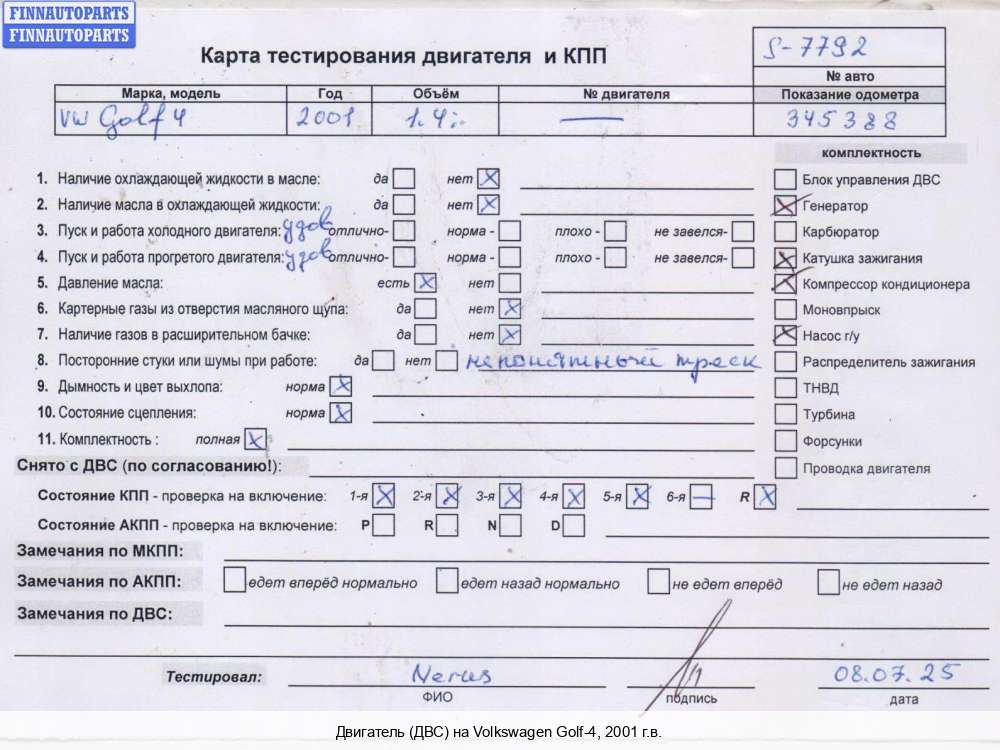 FINNAUTOPARTS
FINNAUTOPARTS
Карта тестирования двигателя и КПП
S-7792
№ авто
Марка, модель Год Объём № двигателя Показание одометра
VW Golf 4 2001 1.4i — 345388
комплектность
1. Наличие охлаждающей жидкости в масле: да нет X
Блок управления ДВС
2. Наличие масла в охлаждающей жидкости: да нет X
X Генератор
3. Пуск и работа холодного двигателя: удов отлично- норма - плохо - не завелся-
Карбюратор
4. Пуск и работа прогретого двигателя: удов отлично- норма - плохо - не завелся-
X Катушка зажигания
5. Давление масла: есть X нет
X Компрессор кондиционера
6. Картерные газы из отверстия масляного щупа: да нет X
Моновпрыск
7. Наличие газов в расширительном бачке: да нет X
X Насос г/у
8. Посторонние стуки или шумы при работе: да нет непонятный треск
Распределитель зажигания
9. Дымность и цвет выхлопа: норма X
ТНВД
10. Состояние сцепления: норма X
Турбина
11. Комплектность : полная X
Форсунки
Снято с ДВС (по согласованию!):
Проводка двигателя
Состояние КПП - проверка на включение: 1-я X 2-я X 3-я X 4-я X 5-я X 6-я — R X
Состояние АКПП - проверка на включение: P R N D
Замечания по МКПП:
Замечания по АКПП: едет вперёд нормально едет назад нормально не едет вперёд не едет назад
Замечания по ДВС:
Тестировал: Nerus 08.07.25
ФИО подпись дата
Двигатель (ДВС) на Volkswagen Golf-4, 2001 г.в.